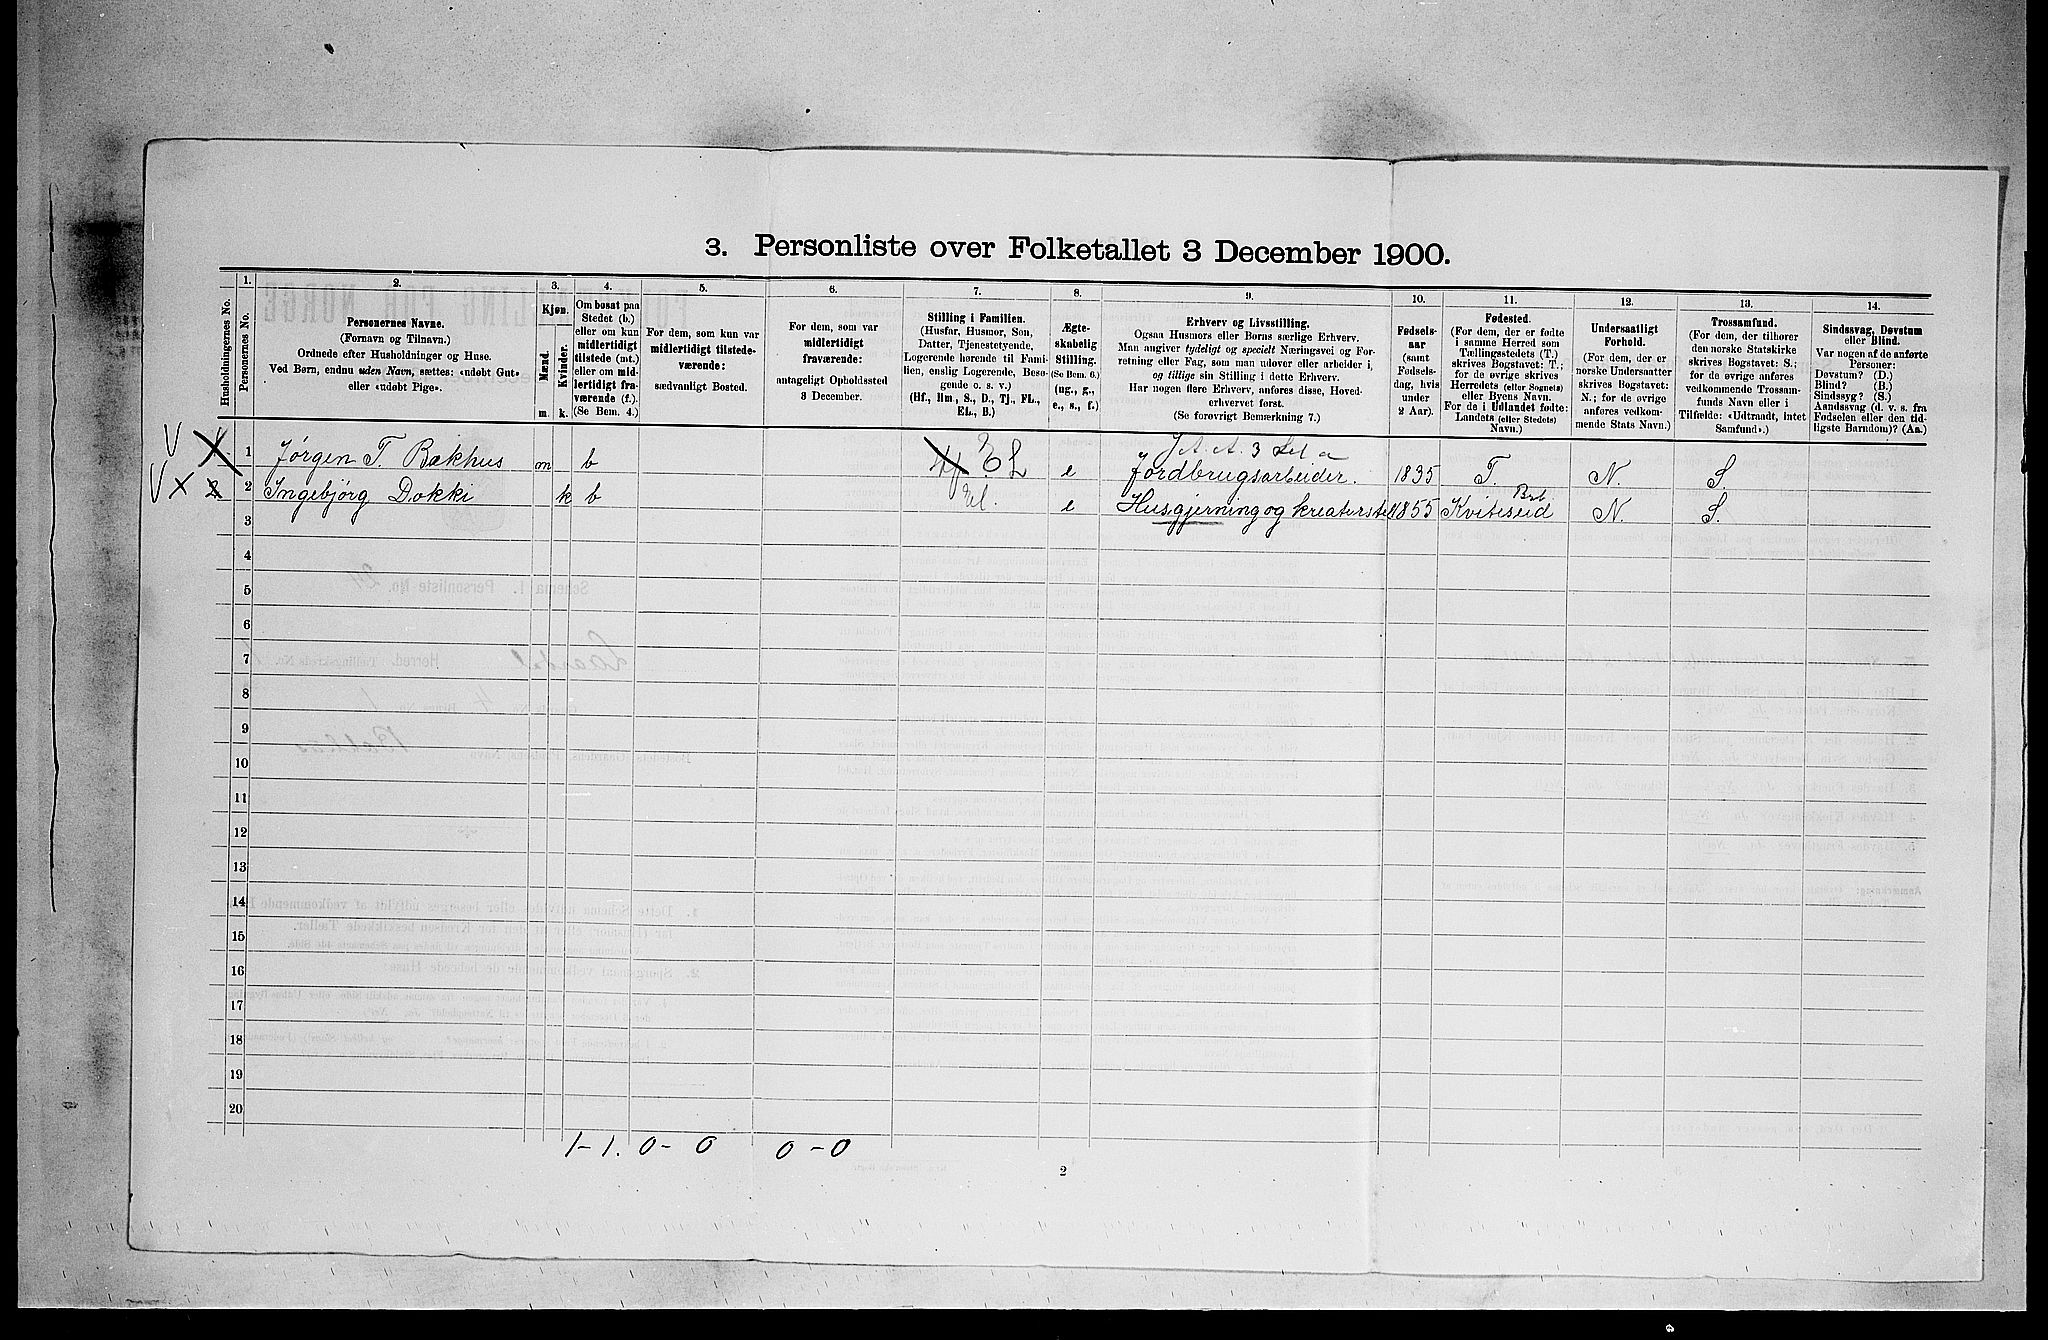 3. Personliste over Folketallet 3 December 1900.
Husholdningernes No.
1.
Personernes No.
2.
Personernes Navne.
(Fornavn og Tilnavn.)
Ordnede efter Husholdninger og Huse.
Ved Børn, endnu uden Navn, sættes: «udøbt Gut»
eller «udøbt Pige».
3.
Kjøn.
Mænd.
Kvinder.
m.
k.
4.
Om bosat paa
Stedet (b.)
eller om kun
midlertidigt
tilstede (mt.)
eller om mid-
lertidigt fra-
værende (f.).
(Se Bem. 4.)
5.
For dem, som kun var
midlertidigt tilstede-
værende:
sædvanligt Bosted.
6.
For dem, som var
midlertidigt
fraværende:
antageligt Opholdssted
3 December.
7.
Stilling i Familien.
(Husfar, Husmor, Søn,
Datter, Tjenestetyende,
Logerende hørende til Fami-
lien, enslig Logerende, Besø-
gende o. s. v.)
(Hf., Hm., S., D., Tj., FL.,
EL., B.)
8.
Ægte-
skabelig
Stilling.
(Se Bem. 6.)
(ug., g.,
e., s., f.)
9.
Erhverv og Livsstilling.
Ogsaa Husmors eller Børns særlige Erhverv.
Man angiver tydeligt og specielt Næringsvei og For-
retning eller Fag, som man udøver eller arbeider i,
og tillige sin Stilling i dette Erhverv.
Har nogen flere Erhverv, anføres disse, Hoved-
erhvervet først.
(Se forøvrigt Bemærkning 7.)
10.
Fødsels-
aar
(samt
Fødsels-
dag, hvis
under
2 Aar).
11.
Fødested.
(For dem, der er fødte
i samme Herred som
Tællingsstedets (T.)
skrives Bogstavet: T.;
for de øvrige skrives
Herredets (eller Sognets)
eller Byens Navn.
For de i Udlandet fødte:
Landets (eller Stedets)
Navn.)
12.
Undersaatligt
Forhold.
(For dem, der er
norske Undersaatter
skrives Bogstavet:
N.; for de øvrige
anføres vedkom-
mende Stats Navn.)
13.
Trossamfund.
(For dem, der tilhører
den norske Statskirke
skrives Bogstavet: S.;
for de øvrige anføres
vedkommende Trossam-
funds Navn eller i
Tilfælde: «Udtraadt, intet
Samfund».)
14.
Sindssvag, Døvstum
eller Blind.
Var nogen af de anførte
Personer:
Døvstum? (D.)
Blind? (B.)
Sindssyg? (S.)
Aandssvag (d. v. s. fra
Fødselen eller den tid-
ligste Barndom)? (Aa.)
V 1 1 Jørgen T. Bakhus m b Hf EL e Jordbrugsarbeider. 1835 T. N. S.
V X 2 2 Ingebjörg Dokki k b El. e Husgjerning og kreaturstel 1855 Kviteseid Brb. N. S.
3
4
5
6
7
8
9
10
11
12
13
14
15
16
17
18
19
20
1-1. 0-0 0-0
2